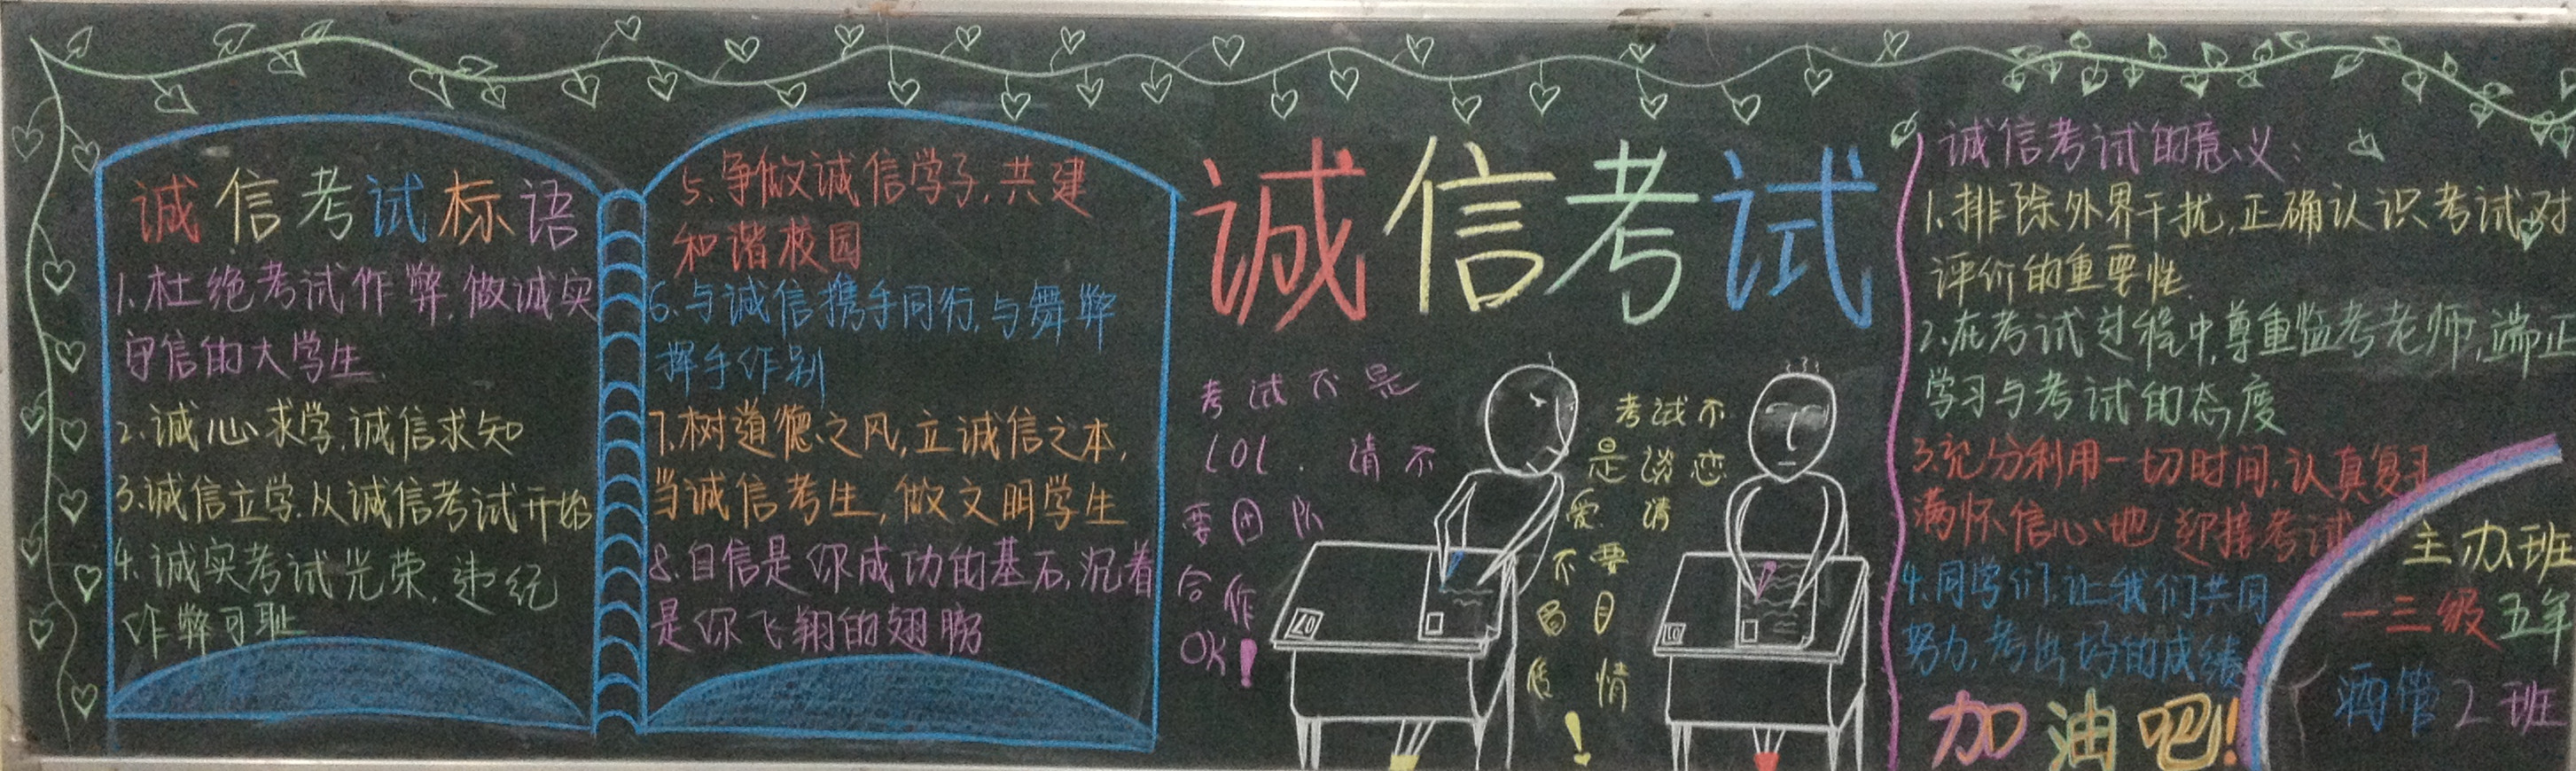 诚信考试标语
1.杜绝考试作弊,做诚实
守信的大学生.
2.诚心求学,诚信求知
3.诚信立学,从诚信考试开始
4.诚实考试光荣,违纪
作弊可耻
5.争做诚信学子,共建
和谐校园
6.与诚信携手同行,与舞弊
挥手作别
7.树道德之风,立诚信之本,
当诚信考生,做文明学生
8.自信是你成功的基石,沉着
是你飞翔的翅膀
诚信考试
考试不是
LOL.请不
要团队
合作
OK!
考试不
是谈恋
爱 请
不要
眉目
传情
!
诚信考试的意义:
1.排除外界干扰,正确认识考试对
评价的重要性.
2.在考试过程中,尊重监考老师,端正
学习与考试的态度
3.充分利用一切时间,认真复习
满怀信心地迎接考试
4.同学们,让我们共同
努力,考出好的成绩
加油吧!
主办班
一三级五年
酒管2班